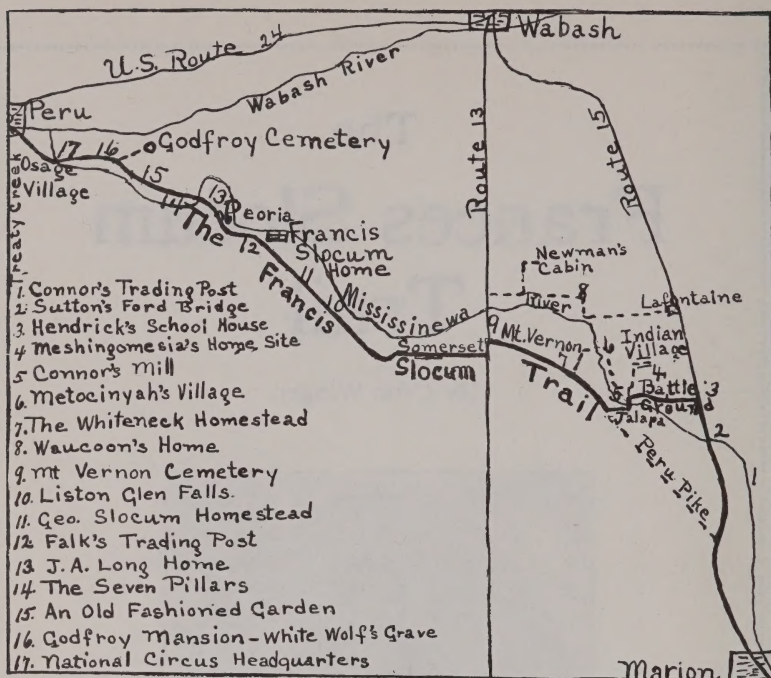 Wabash
U.S. Route 24
Wabash River
Peru
Godfroy Cemetery
Route 13
Route 15
17
16
15
14
13
12
11
10
Osage
Village
Treaty Creek
Peoria
The Francis Slocum Trail
Francis
Slocum
Home
Mississinewa River
Newman's
Cabin
8
Lafontaine
Indian
Village
6
4
5
Battle
Ground
3
9
Mt. Vernon
7
Somerset
Jalapa
2
1
Peru Pike
Marion
1. Connor's Trading Post
2. Sutton's Ford Bridge
3. Hendrick's School House
4. Meshingomesia's Home Site
5. Connor's Mill
6. Metocinyah's Village
7. The Whiteneck Homestead
8. Waucoon's Home
9. Mt Vernon Cemetery
10. Liston Glen Falls.
11. Geo. Slocum Homestead
12. Falk's Trading Post
13. J. A. Long Home
14. The Seven Pillars
15. An Old Fashioned Garden
16. Godfroy Mansion - White Wolf's Grave
17. National Circus Headquarters